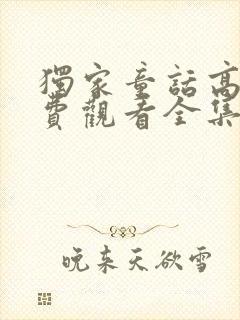 獨家童話高
費觀看全集
晚来天欲雪